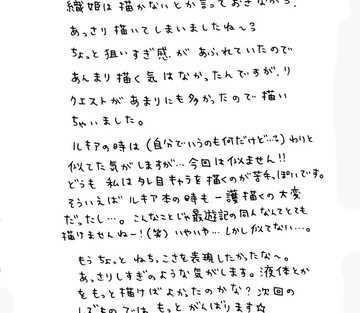 織姫は描かないとか言っておきながら、
あっさり描いてしまいましたね〜3
ちょっと狙いすぎ感があふれていたので
あんまり描く気はなかったんですが、リ
クエストがあまりにも多かったので描い
ちゃいました。
ルキアの時は(自分でいうのも何だけど…)わりと
似てた気がしますが…今回は似ません!!
どうも 私はタレ目キャラを描くのが苦手っぽいです。
そういえばルキア本の時も一護描くの大変
だったし…。こんなことじゃ最遊記の同人なんてとても
描けませんねー!(笑)いやいや…しかし似てない…。
もうちょっと ねちっこさを表現したかったな〜。
あっさりしすぎのような気がします。液体とか
をもっと描けばよかったのかな?次回の
では、もっとがんばります☆